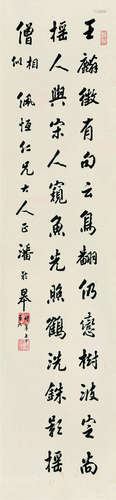 王麟徵有句云鳥翻仍戀樹波定尚
搖人與宋人窺魚光照鶴洗鉢影搖
僧相似
佩恒仁兄大人正潘齡皋